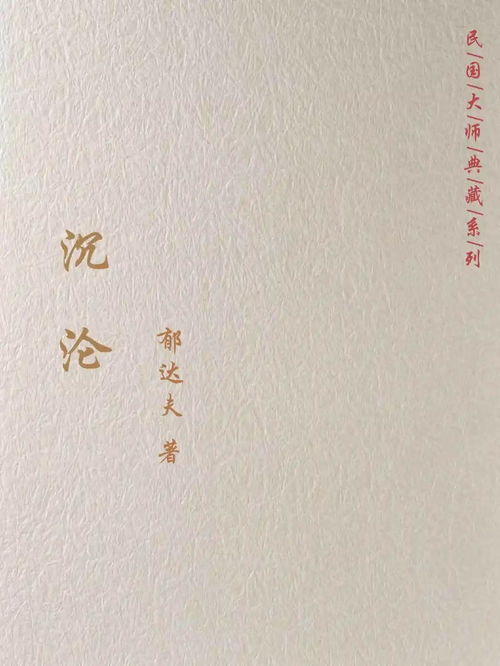 民国大师典藏系列
沉沦
郁达夫 著